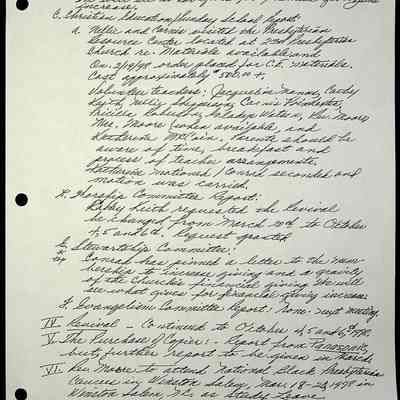 increase.
C. Christian Education/Sunday School Report:
a. Nellie and Carrie visited the Presbyterian
Resource Center located at 2nd Presbyterian
Church re: Materials available and
On 2/9/98 order placed for C.E. materials.
Cost approximately $500.00 +,
Volunteer teachers: Jacqueline Nanns, Candy
Keith, Nellie
Pricilla Roberson, Gladys Watson, Rev. Moore
Mrs. Moore (when available, and
Katherine McCain. Parents should be
aware of time, breakfast and
process of teacher arrangements.
Katherine motioned / Conrad seconded and
motion was carried.
Worship Committee Report:
Keith requested the Revival
be changed from March 20th to October
4, 5 and 6th. Request granted
Stewardship Committee:
Conrad has pinned a letter to the mem-
bership to increase giving and a
of the Churches financial giving. He will
see what gives for financial giving increase.
Evangelism Committee Report: None. next meeting
IV Revival - Continued to October 4, 5 and 6th 1998.
V. The Purchase of Copier: - Report from Panasonic,
but, further report to be given in March.
VI Rev. Moore to attend National Black Presbyterian
Caucus in Winston Salem, Mar. 18-22, 1998 in
Winston Salem, NC as Study Leave